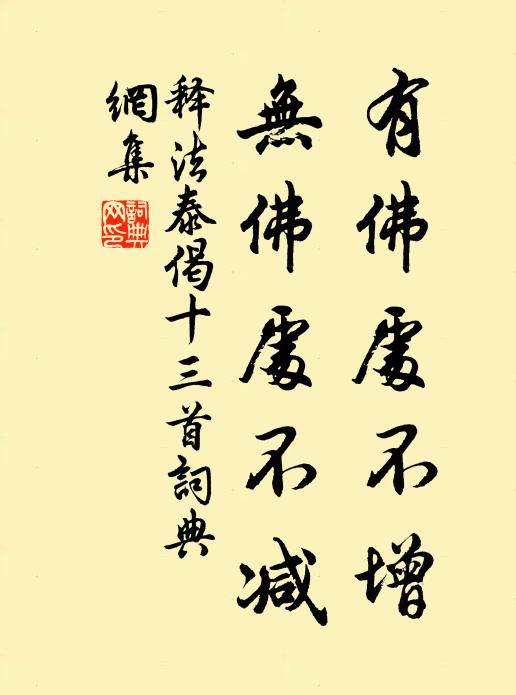 有佛處不增
無佛處不减
释法泰偈十三首詞典
網集
詞典
网印